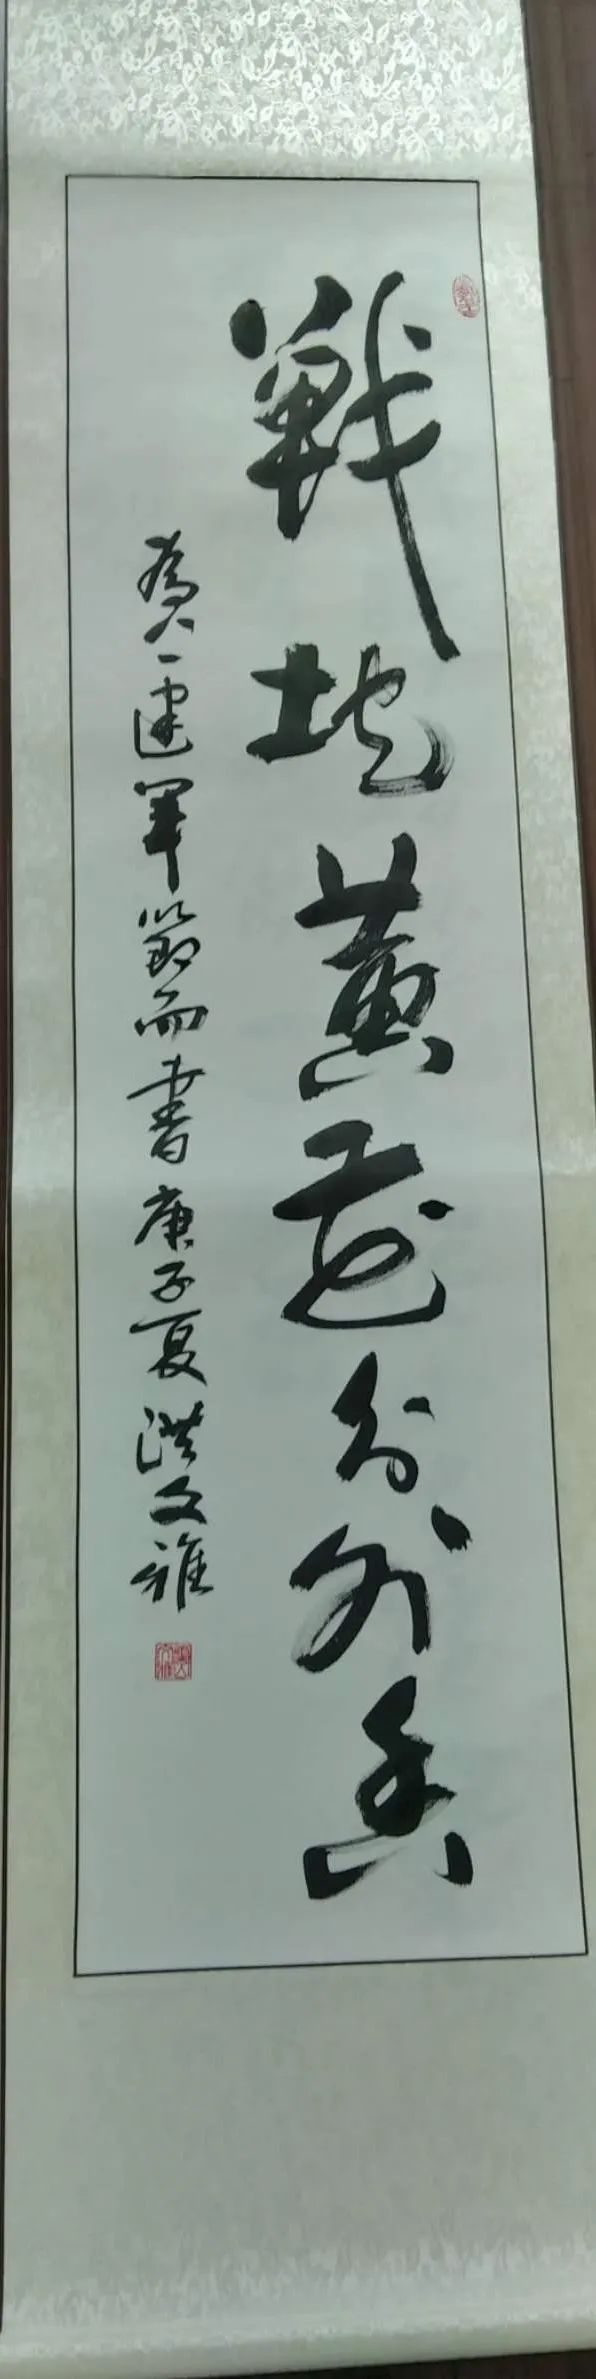 戰地黄花分外香
為八一建軍節而書庚子夏洪文雅